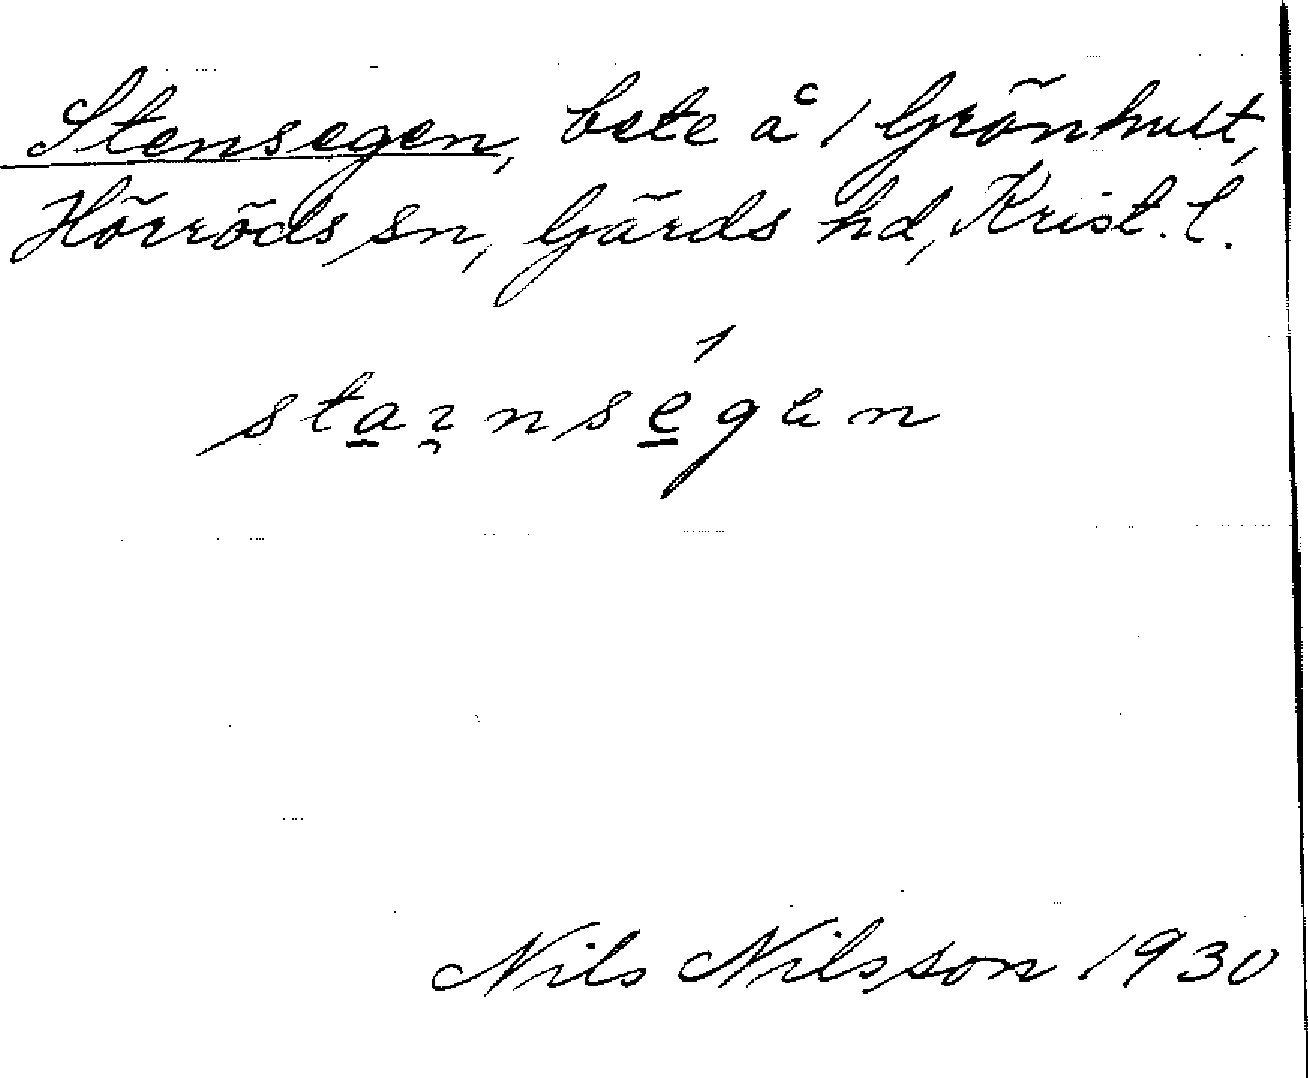 Stensegen, bete å 1 Grönhult,
Hörröds sn, Gärds hd, Krist. l.
staɿnségen
Nils Nilsson 1930